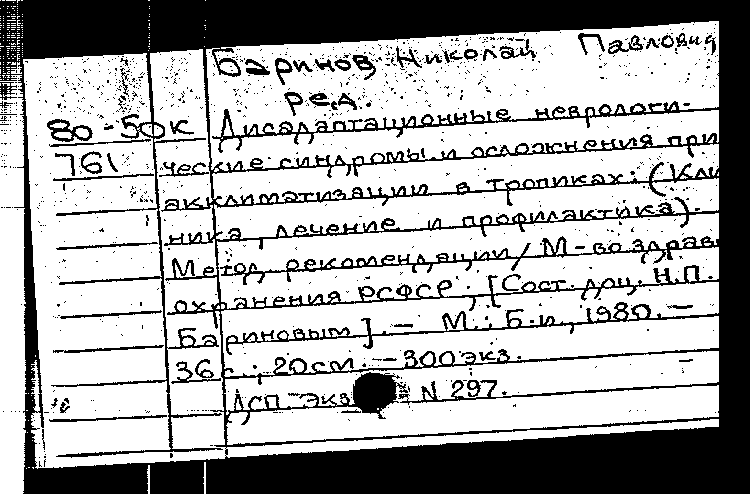 Баринов Николай Павлович
ред.
80-50К Дисадаптационные неврологи-
761 ческие синдромы и осложнения при
акклиматизации в тропиках: (Кли
ника, лечение и профилактика).
Метод. рекомендации / М-во здрав
охранения РСФСР; [Сост. доц. Н.П.
Бариновым]. — М.: Б.и., 1980. —
36 с.; 20см. — 300экз.
Дсп. Экз N 297.